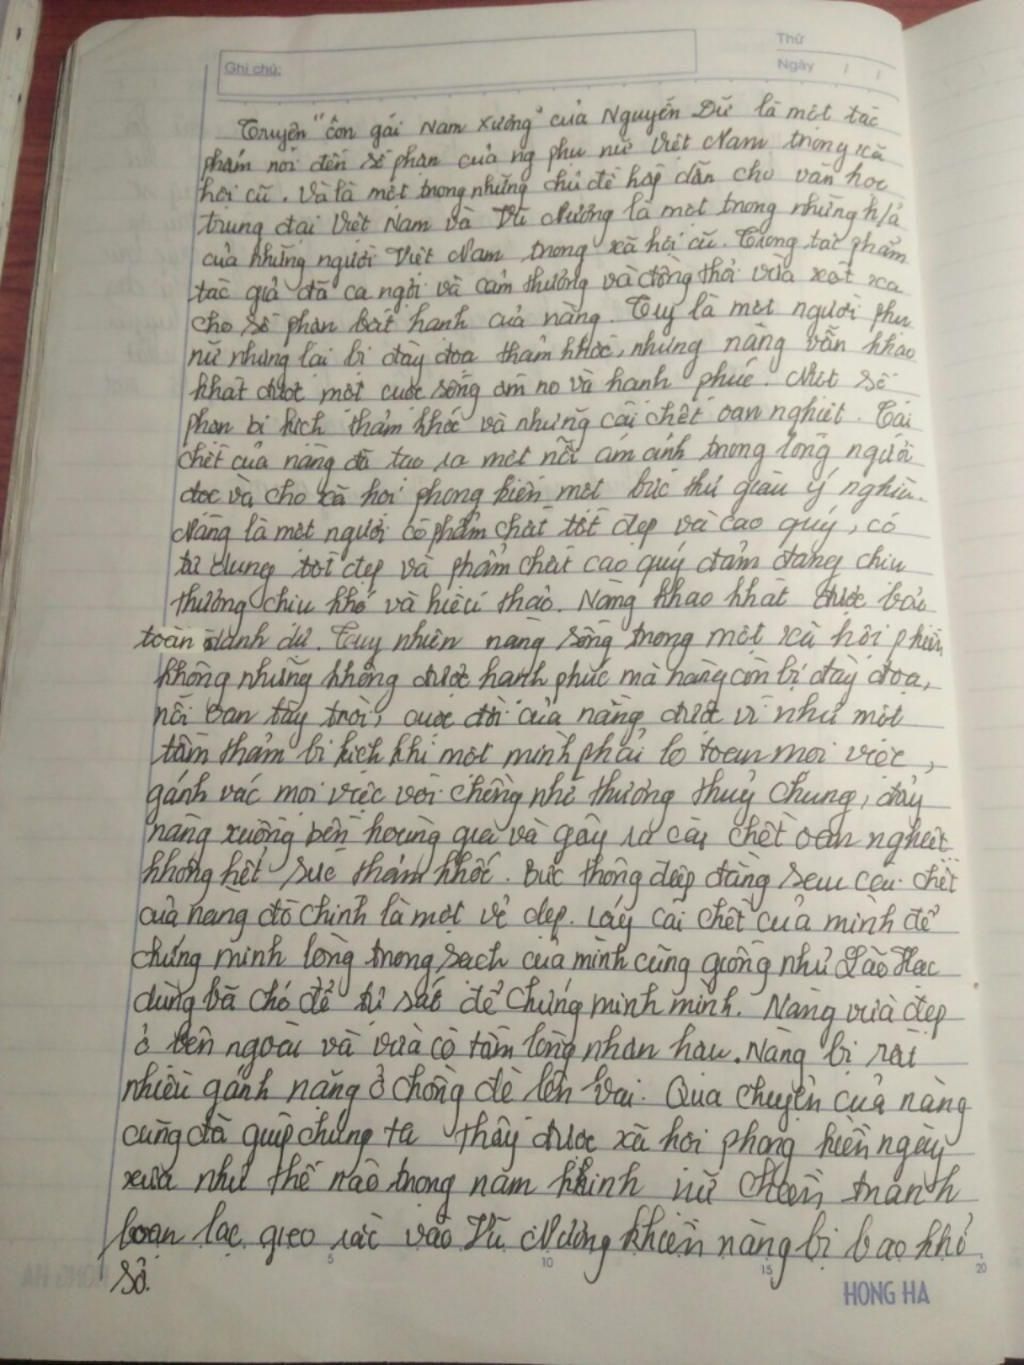 Thứ
Ghi chú:
Ngày / /
Truyện "côn gái Nam Xương" của Nguyễn Dữ là một tác
phẩm nói đến số phận của ng phụ nữ Việt Nam trong xã
hội cũ. Và là một trong những chủ đề hấp dẫn cho văn học
trung đại Việt Nam và Vũ Nương là một trong những h/ả
của những người Việt Nam trong xã hội cũ. Trong tác phẩm
tác giả đã ca ngợi và cảm thương và đồng thời vừa xót xa
cho số phận bất hạnh của nàng. Tuy là một người phụ
nữ nhưng lại bị đày đọa thảm khốc, nhưng nàng vẫn khao
khát được một cuộc sống ấm no và hạnh phúc. Một số
phận bi kịch thảm khốc và những cái chết oan nghiệt. Cái
chết của nàng đã tạo ra một nỗi ám ảnh trong lòng người
đọc và cho xã hội phong kiến một bức thư giàu ý nghĩa.
Nàng là một người có phẩm chất tốt đẹp và cao quý, có
tư dung tốt đẹp và phẩm chất cao quý đảm đang chịu
thương chịu khó và hiếu thảo. Nàng khao khát được bảo
toàn danh dự. Tuy nhiên nàng sống trong một xã hội phiền
không những không được hạnh phúc mà nàng còn bị đày đọa,
nỗi oan tày trời, cuộc đời của nàng được ví như một
tấm thảm bi kịch khi một mình phải lo toan mọi việc,
gánh vác mọi việc với chồng nhớ thương thuỷ chung, đẩy
nàng xuống bến hoàng giá và gây ra cái chết oan nghiệt
không hết sức thảm khốc. Bức thông điệp đằng sau cái chết
của nàng đó chính là một vẻ đẹp. Lấy cái chết của mình để
chứng minh lòng trong sạch của mình cũng giống như Lão Hạc
dùng bả chó để tự sát để chứng minh mình. Nàng vừa đẹp
ở bên ngoài và vừa có tấm lòng nhân hậu. Nàng bị rất
nhiều gánh nặng ở chồng đè lên vai. Qua chuyện của nàng
cũng đã giúp chúng ta thấy được xã hội phong kiến ngày
xưa như thế nào trong năm khinh nữ chiến tranh
loạn lạc gieo rắc vào Vũ Nương khiến nàng bị bao khổ
sở.
5 10 15 20
HONG HA